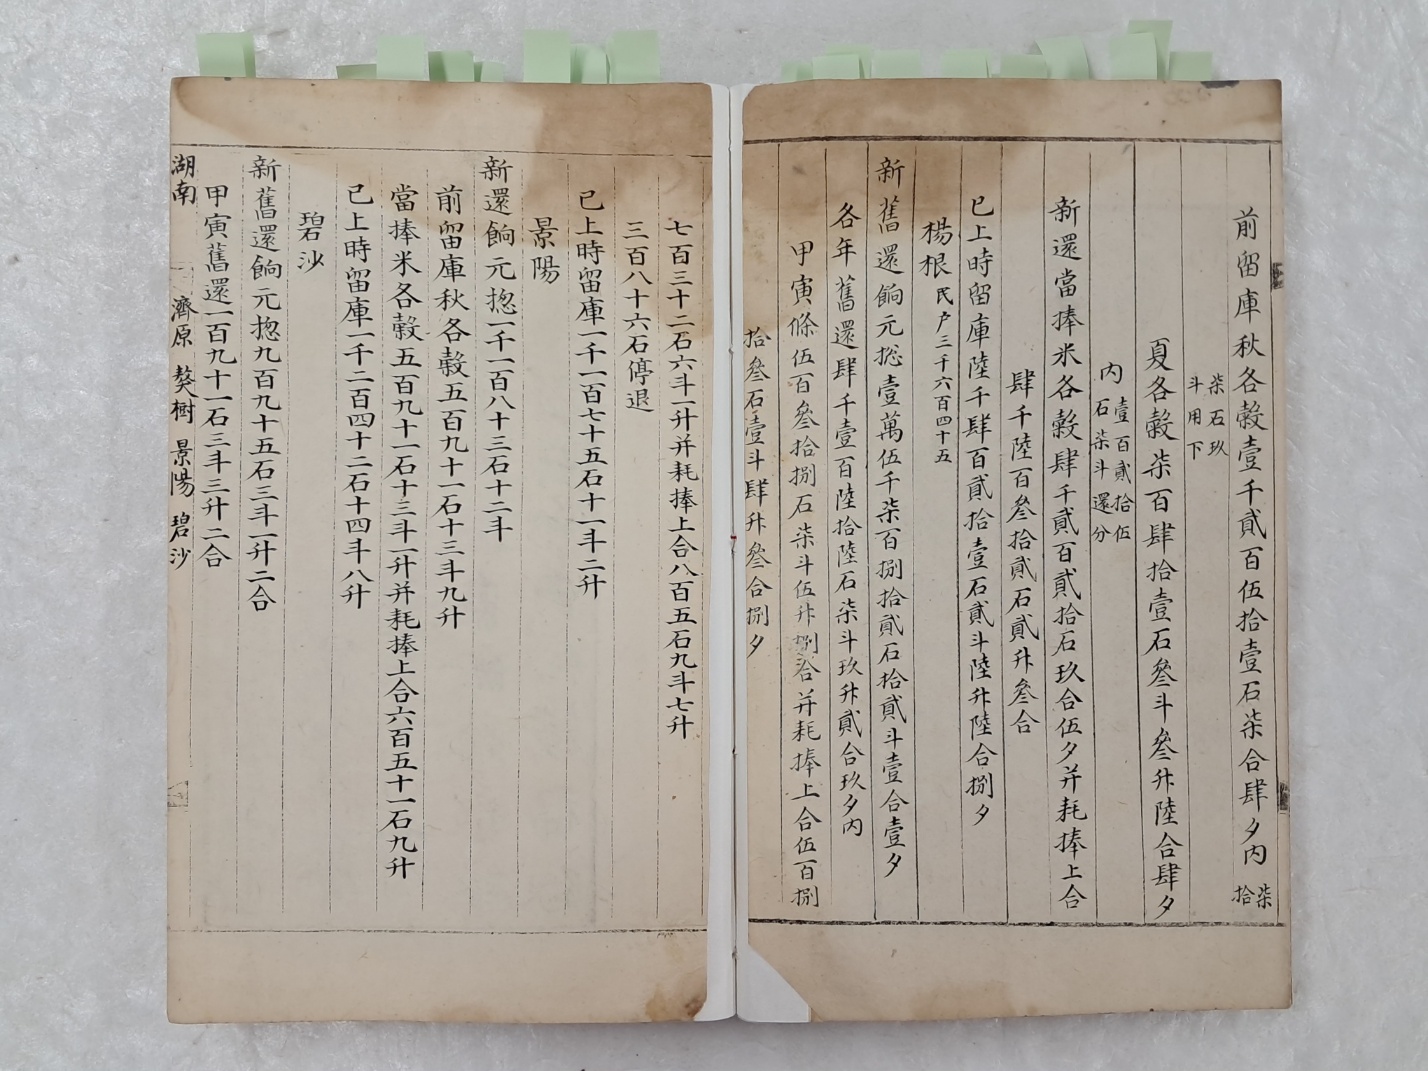 前留庫秋各穀壹千貳百伍拾壹石柒合肆夕內柒拾
柒石玖斗用下
夏各穀柒百肆拾壹石叄斗叄升陸合肆夕
內壹百貳拾伍石柒斗還分
新還當捧米各穀肆千貳百貳拾石玖合伍夕并耗捧上合
肆千陸百叄拾貳石貳升叄合
已上時留庫陸千肆百貳拾壹石貳斗陸升陸合捌夕
楊根民戶三千六百四十五
新舊還餉元摠壹萬伍千柒百捌拾貳石拾貳斗壹合壹夕
各年舊還肆千壹百陸拾陸石柒斗玖升貳合玖夕內
甲寅條伍百叄拾捌石柒斗伍升捌合并耗捧上合伍百捌
拾叄石壹斗肆升叄合捌夕
七百三十二石六斗一升并耗捧上合八百五石九斗七升
三百八十六石停退
已上時留庫一千一百七十五石十一斗二升
景陽
新還餉元摠一千一百八十三石十二斗
前留庫秋各穀五百九十一石十三斗九升
當捧米各穀五百九十一石十三斗一升并耗捧上合六百五十一石九升
已上時留庫一千二百四十二石十四斗八升
碧沙
新舊還餉元摠九百九十五石三斗一升二合
甲寅舊還一百九十一石三斗三升二合
湖南 濟原 獒樹 景陽 碧沙